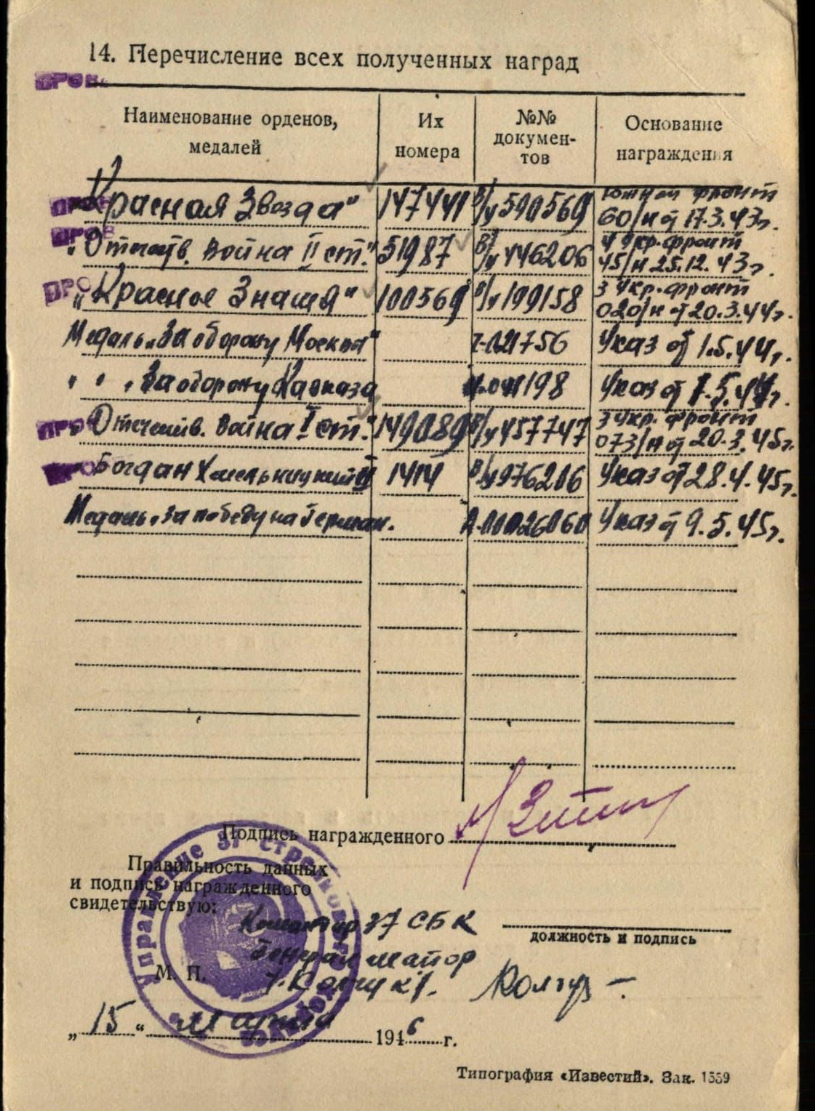 14. Перечисление всех полученных наград
ПРОВ
Наименование орденов, медалей
Их номера
№№ документов
Основание награждения
"Красная Звезда" 147441 в/у 590569 Южный фронт 60/н от 17.3.43г.
"Отечеств. Война II ст." 51987 в/у 446206 4 Укр. фронт 45/н 25.12.43г.
"Красное Знамя" 100569 в/у 199158 3 Укр. фронт 020/н от 20.3.44г.
Медаль "За оборону Москвы" Указ от 1.5.44г.
" " "За оборону Кавказа Указ от 1.5.44г.
Отечеств. Война I ст." 149089 в/у 457747 3 Укр. фронт 073/н от 20.3.45г.
Богдан Хмельницкий II 1414 в/у 976206 Указ от 28.4.45г.
Медаль "За победу над Герман. Указ от 9.5.45г.
Подпись награжденного
Правильность данных
и подпись награжденного
свидетельствую:
Командир 37 СБК
Генерал майор
/Колчук/.
должность и подпись
М. П.
Управление 37 стрелкового корпуса
„15“ Марта 1946 г.
Типография «Известий». Зак. 1559